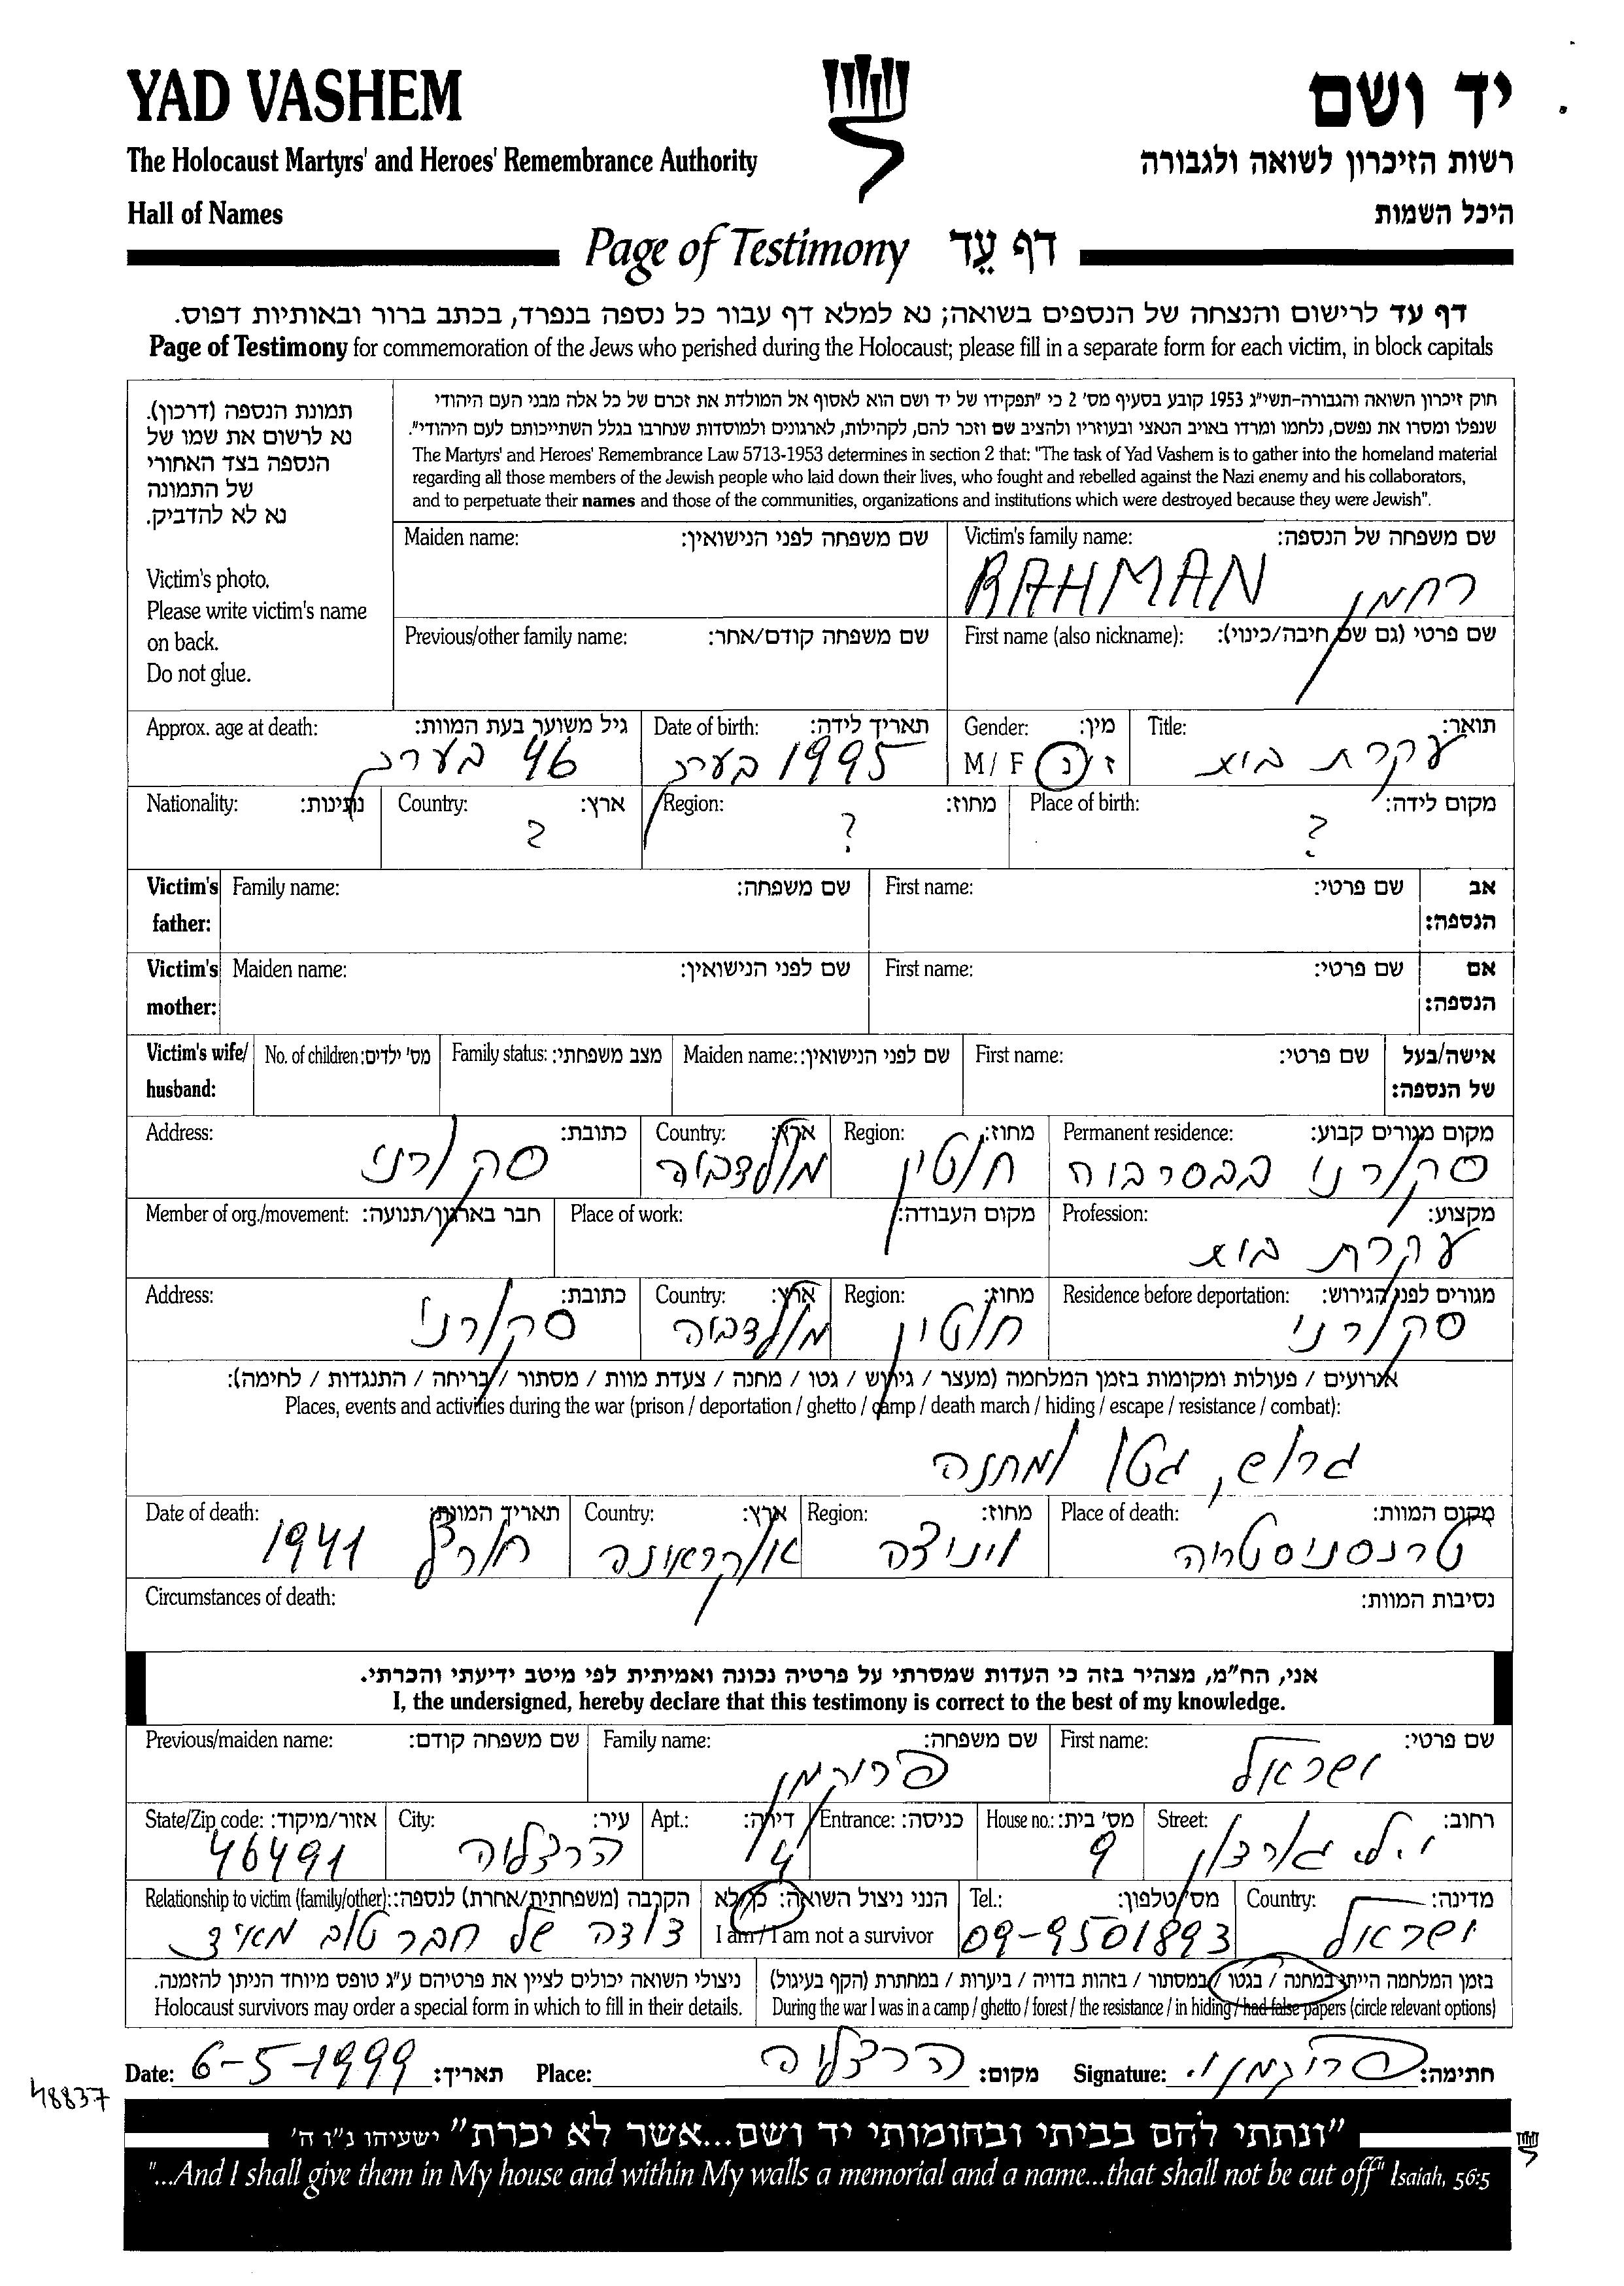 YAD VASHEM
יד ושם
The Holocaust Martyrs' and Heroes' Remembrance Authority
רשות הזיכרון לשואה ולגבורה
Hall of Names
היכל השמות
Page of Testimony דף עֵד
דף עד לרישום והנצחה של הנספים בשואה; נא למלא דף עבור כל נספה בנפרד, בכתב ברור ובאותיות דפוס.
Page of Testimony for commemoration of the Jews who perished during the Holocaust; please fill in a separate form for each victim, in block capitals
תמונת הנספה (דרכון).
נא לרשום את שמו של
הנספה בצד האחורי
של התמונה
נא לא להדביק.
Victim's photo.
Please write victim's name
on back.
Do not glue.
חוק זיכרון השואה והגבורה-תשי"ג 1953 קובע בסעיף מס' 2 כי "תפקידו של יד ושם הוא לאסוף אל המולדת את זכרם של כל אלה מבני העם היהודי
שנפלו ומסרו את נפשם, נלחמו ומרדו באויב הנאצי ובעוזריו ולהציב שם וזכר להם, לקהילות, לארגונים ולמוסדות שנחרבו בגלל השתייכותם לעם היהודי".
The Martyrs' and Heroes' Remembrance Law 5713-1953 determines in section 2 that: "The task of Yad Vashem is to gather into the homeland material
regarding all those members of the Jewish people who laid down their lives, who fought and rebelled against the Nazi enemy and his collaborators,
and to perpetuate their names and those of the communities, organizations and institutions which were destroyed because they were Jewish".
Maiden name: שם משפחה לפני הנישואין:
Victim's family name: שם משפחה של הנספה:
RAHMAN רחמן
Previous/other family name: שם משפחה קודם/אחר:
First name (also nickname): שם פרטי (גם שם חיבה/כינוי):
Approx. age at death: גיל משוער בעת המוות:
46 בערך
Date of birth: תאריך לידה:
1995 בערך
Gender: מין:
M / F ז / נ
Title: תואר:
עקרת בית
Nationality: נתינות:
Country: ארץ:
?
Region: מחוז:
?
Place of birth: מקום לידה:
?
Victim's father: Family name: שם משפחה: First name: שם פרטי: אב הנספה:
Victim's mother: Maiden name: שם לפני הנישואין: First name: שם פרטי: אם הנספה:
Victim's wife/ husband: No. of children: מס' ילדים: Family status: מצב משפחתי: Maiden name: שם לפני הנישואין: First name: שם פרטי: אישה/בעל של הנספה:
Address: כתובת:
סקורני
Country: ארץ:
מולדביה
Region: מחוז:
חוטין
Permanent residence: מקום מגורים קבוע:
סקורני בבסרביה
Member of org./movement: חבר בארגון/תנועה:
Place of work: מקום העבודה:
Profession: מקצוע:
עקרת בית
Address: כתובת:
סקורני
Country: ארץ:
מולדביה
Region: מחוז:
חוטין
Residence before deportation: מגורים לפני הגירוש:
סקורני
ארועים / פעולות ומקומות בזמן המלחמה (מעצר / גירוש / גטו / מחנה / צעדת מוות / מסתור / בריחה / התנגדות / לחימה):
Places, events and activities during the war (prison / deportation / ghetto / camp / death march / hiding / escape / resistance / combat):
גרוש, גטו ומחנה
Date of death: תאריך המוות:
חורף 1941
Country: ארץ:
אוקראינה
Region: מחוז:
ויניצה
Place of death: מקום המוות:
טרנסניסטריה
Circumstances of death: נסיבות המוות:
אני, הח"מ, מצהיר בזה כי העדות שמסרתי על פרטיה נכונה ואמיתית לפי מיטב ידיעתי והכרתי.
I, the undersigned, hereby declare that this testimony is correct to the best of my knowledge.
Previous/maiden name: שם משפחה קודם:
Family name: שם משפחה:
פרוקמן
First name: שם פרטי:
ישראל
State/Zip code: אזור/מיקוד:
46491
City: עיר:
הרצליה
Apt.: דירה:
14
Entrance: כניסה:
House no.: מס' בית:
9
Street: רחוב:
Relationship to victim (family/other): הקרבה (משפחתית/אחרת) לנספה:
דודה של חבר טוב מאיד
הנני ניצול השואה: כן/לא
I am / I am not a survivor
Tel.: מס' טלפון:
09-9501893
Country: מדינה:
ישראל
ניצולי השואה יכולים לציין את פרטיהם ע"ג טופס מיוחד הניתן להזמנה.
Holocaust survivors may order a special form in which to fill in their details.
בזמן המלחמה הייתי במחנה / בגטו / במסתור / בזהות בדויה / ביערות / במחתרת (הקף בעיגול)
During the war I was in a camp / ghetto / forest / the resistance / in hiding / had false papers (circle relevant options)
Date: 6-5-1999 תאריך: Place: הרצליה מקום: Signature: פרוקמן י. חתימה:
48837
"ונתתי להם בביתי ובחומותי יד ושם...אשר לא יכרת" ישעיהו נ"ו ה'
"...And I shall give them in My house and within My walls a memorial and a name...that shall not be cut off" Isaiah, 56:5